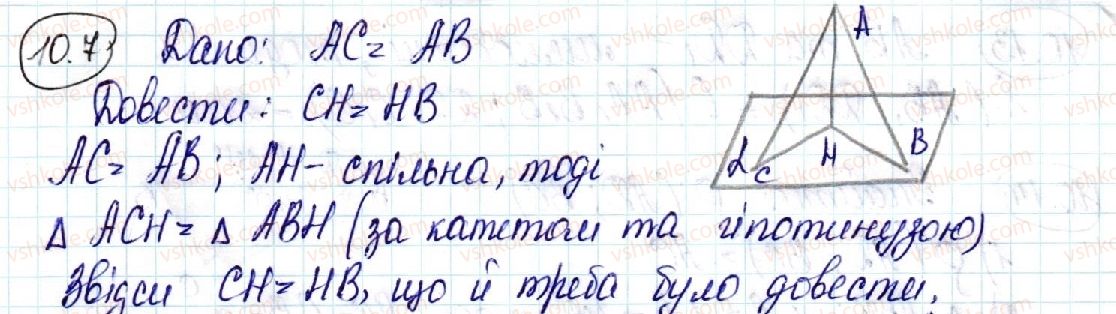 10.7 Дано: AC = AB
Довести: CH = HB
AC = AB; AH – спільна, тоді
Δ ACH = Δ ABH (за катетом та гіпотинузою).
Звідси CH = HB, що й треба було довести.
A
B
H
α
C